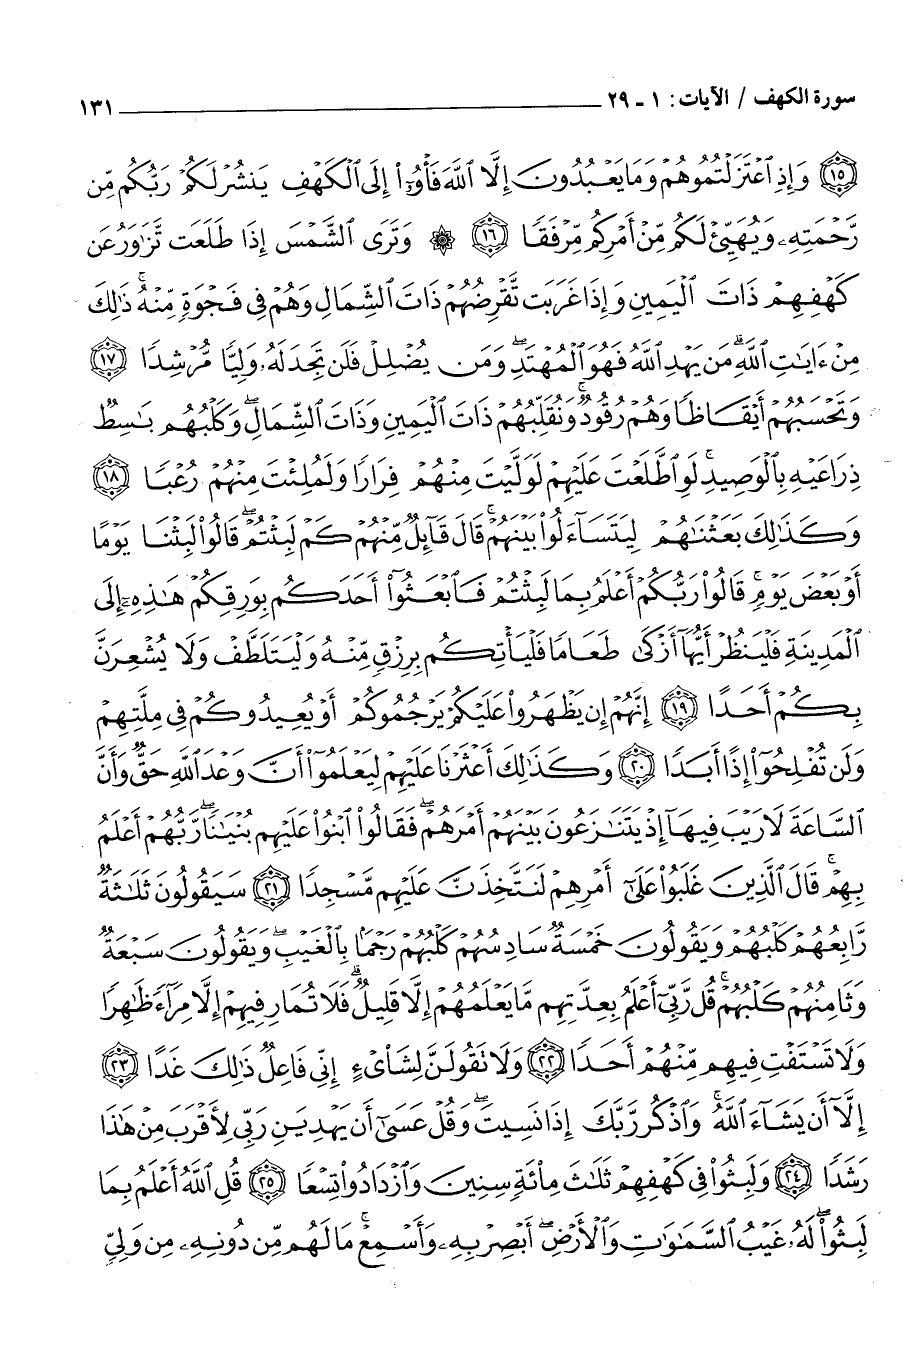 سورة الكهف / الآيات: ١ - ٢٩ ١٣١
﴿١٥﴾ وَإِذِ ٱعْتَزَلْتُمُوهُمْ وَمَا يَعْبُدُونَ إِلَّا ٱللَّهَ فَأْوُۥٓا۟ إِلَى ٱلْكَهْفِ يَنشُرْ لَكُمْ رَبُّكُم مِّن
رَّحْمَتِهِۦ وَيُهَيِّئْ لَكُم مِّنْ أَمْرِكُم مِّرْفَقًا ﴿١٦﴾ ۞ وَتَرَى ٱلشَّمْسَ إِذَا طَلَعَت تَّزَٰوَرُ عَن
كَهْفِهِمْ ذَاتَ ٱلْيَمِينِ وَإِذَا غَرَبَت تَّقْرِضُهُمْ ذَاتَ ٱلشِّمَالِ وَهُمْ فِى فَجْوَةٍ مِّنْهُ ۚ ذَٰلِكَ
مِنْ ءَايَٰتِ ٱللَّهِ ۗ مَن يَهْدِ ٱللَّهُ فَهُوَ ٱلْمُهْتَدِ ۖ وَمَن يُضْلِلْ فَلَن تَجِدَ لَهُۥ وَلِيًّا مُّرْشِدًا ﴿١٧﴾
وَتَحْسَبُهُمْ أَيْقَاظًا وَهُمْ رُقُودٌ ۚ وَنُقَلِّبُهُمْ ذَاتَ ٱلْيَمِينِ وَذَاتَ ٱلشِّمَالِ ۖ وَكَلْبُهُم بَٰسِطٌ
ذِرَاعَيْهِ بِٱلْوَصِيدِ ۚ لَوِ ٱطَّلَعْتَ عَلَيْهِمْ لَوَلَّيْتَ مِنْهُمْ فِرَارًا وَلَمُلِئْتَ مِنْهُمْ رُعْبًا ﴿١٨﴾
وَكَذَٰلِكَ بَعَثْنَٰهُمْ لِيَتَسَآءَلُوا۟ بَيْنَهُمْ ۚ قَالَ قَآئِلٌ مِّنْهُمْ كَمْ لَبِثْتُمْ ۖ قَالُوا۟ لَبِثْنَا يَوْمًا
أَوْ بَعْضَ يَوْمٍ ۚ قَالُوا۟ رَبُّكُمْ أَعْلَمُ بِمَا لَبِثْتُمْ فَٱبْعَثُوٓا۟ أَحَدَكُم بِوَرِقِكُمْ هَٰذِهِۦٓ إِلَى
ٱلْمَدِينَةِ فَلْيَنظُرْ أَيُّهَآ أَزْكَىٰ طَعَامًا فَلْيَأْتِكُم بِرِزْقٍ مِّنْهُ وَلْيَتَلَطَّفْ وَلَا يُشْعِرَنَّ
بِكُمْ أَحَدًا ﴿١٩﴾ إِنَّهُمْ إِن يَظْهَرُوا۟ عَلَيْكُمْ يَرْجُمُوكُمْ أَوْ يُعِيدُوكُمْ فِى مِلَّتِهِمْ
وَلَن تُفْلِحُوٓا۟ إِذًا أَبَدًا ﴿٢٠﴾ وَكَذَٰلِكَ أَعْثَرْنَا عَلَيْهِمْ لِيَعْلَمُوٓا۟ أَنَّ وَعْدَ ٱللَّهِ حَقٌّ وَأَنَّ
ٱلسَّاعَةَ لَا رَيْبَ فِيهَآ إِذْ يَتَنَٰزَعُونَ بَيْنَهُمْ أَمْرَهُمْ ۖ فَقَالُوا۟ ٱبْنُوا۟ عَلَيْهِم بُنْيَٰنًا ۖ رَّبُّهُمْ أَعْلَمُ
بِهِمْ ۚ قَالَ ٱلَّذِينَ غَلَبُوا۟ عَلَىٰٓ أَمْرِهِمْ لَنَتَّخِذَنَّ عَلَيْهِم مَّسْجِدًا ﴿٢١﴾ سَيَقُولُونَ ثَلَٰثَةٌ
رَّابِعُهُمْ كَلْبُهُمْ وَيَقُولُونَ خَمْسَةٌ سَادِسُهُمْ كَلْبُهُمْ رَجْمًۢا بِٱلْغَيْبِ ۖ وَيَقُولُونَ سَبْعَةٌ
وَثَامِنُهُمْ كَلْبُهُمْ ۚ قُل رَّبِّىٓ أَعْلَمُ بِعِدَّتِهِم مَّا يَعْلَمُهُمْ إِلَّا قَلِيلٌ ۗ فَلَا تُمَارِ فِيهِمْ إِلَّا مِرَآءً ظَٰهِرًا
وَلَا تَسْتَفْتِ فِيهِم مِّنْهُمْ أَحَدًا ﴿٢٢﴾ وَلَا تَقُولَنَّ لِشَا۟ىْءٍ إِنِّى فَاعِلٌ ذَٰلِكَ غَدًا ﴿٢٣﴾
إِلَّآ أَن يَشَآءَ ٱللَّهُ ۚ وَٱذْكُر رَّبَّكَ إِذَا نَسِيتَ ۖ وَقُلْ عَسَىٰٓ أَن يَهْدِيَنِ رَبِّى لِأَقْرَبَ مِنْ هَٰذَا
رَشَدًا ﴿٢٤﴾ وَلَبِثُوا۟ فِى كَهْفِهِمْ ثَلَٰثَ مِا۟ئَةٍ سِنِينَ وَٱزْدَادُوا۟ تِسْعًا ﴿٢٥﴾ قُلِ ٱللَّهُ أَعْلَمُ بِمَا
لَبِثُوا۟ ۖ لَهُۥ غَيْبُ ٱلسَّمَٰوَٰتِ وَٱلْأَرْضِ ۖ أَبْصِرْ بِهِۦ وَأَسْمِعْ ۚ مَا لَهُم مِّن دُونِهِۦ مِن وَلِىٍّ